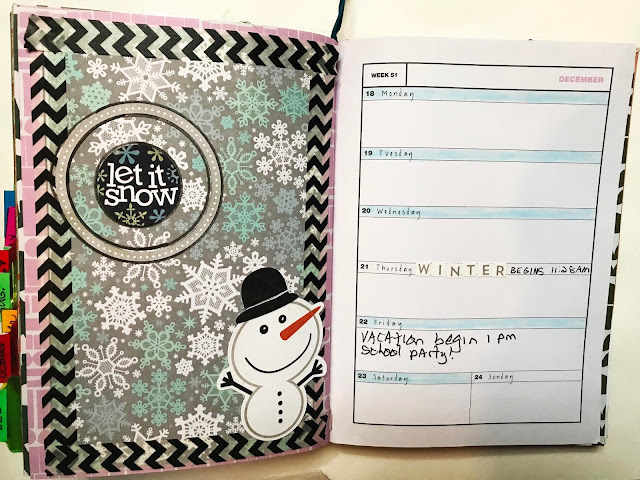 let it
snow
WEEK 51
DECEMBER
18 Monday
19 Tuesday
20 Wednesday
21 Thursday WINTER BEGINS 11:28AM
22 Friday
VACATION begin 1 pm
School party!
23 Saturday
24 Sunday